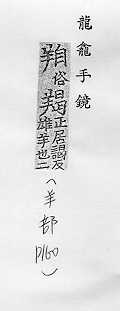 龍龕手鏡
俗羯正居謁反
雄羊也二
(羊部 P160)